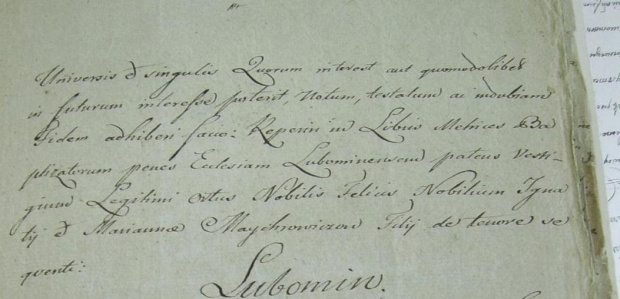 Universis & singulis Quorum interest aut quomodolibet
in futurum interesse poterit, Notum, testatum ac indubiam
Fidem adhiberi facio: Reperiri in Libris Metrices Ba
ptizatorum penes Ecclesiam Lubominensem patens Vesti-
gium Legitimi Ortus Nobilis Felicis Nobilium Igna
tij & Mariannæ Maychrowiczow Filij de tenore se
quenti:
Lubomin.